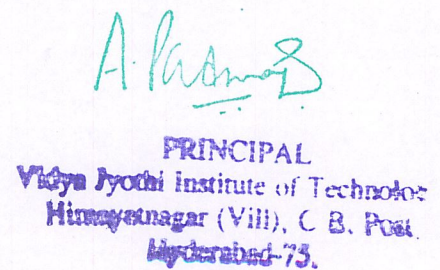 A.
PRINCIPAL
Vidya Jyothi Institute of Technolog
Himayatnagar (Vill), C. B. Post
Hyderabad-75.